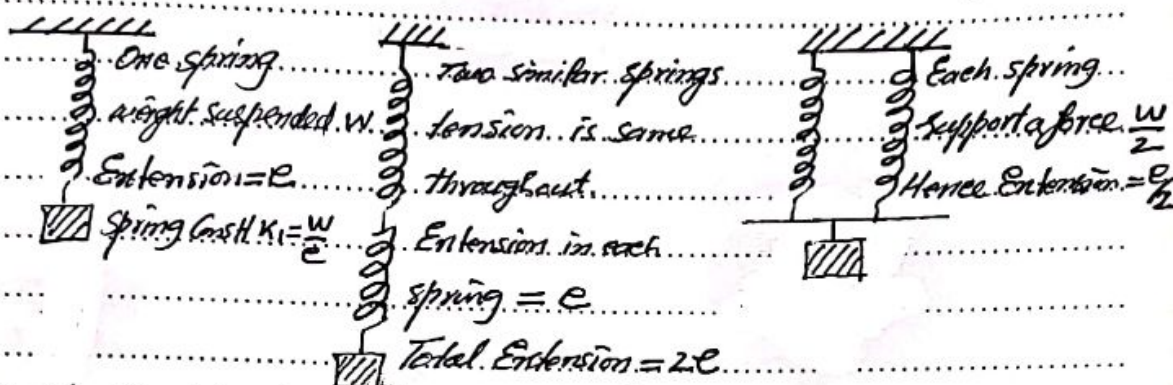 One spring
weight suspended W
Extension = e
Spring Const K₁ = W/e
Two similar springs
tension is same
throughout.
Extension in each
spring = e
Total Extension = 2e
Each spring
support a force W/2
Hence Extension = e/2